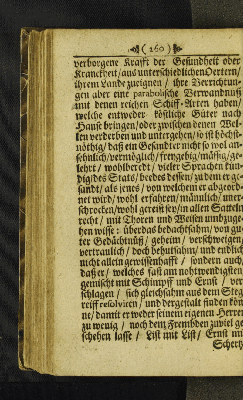 ( 160 )
verborgene Krafft der Gesundheit oder
Kranckheit/ aus unterschiedlichen Oertern/
ihrem Lande zueignen / ihr Verrichtun-
gen aber eine parabolische Verwandnuß
mit denen reichen Schiff-Arten haben/
welche entweder köstliche Güter nach
Hauß bringen/ oder zwischen denen Wel-
len verderben und untergehen/ so ist höchst-
nöthig/ daß ein Gesandter nicht so wol an-
sehnlich/ vermöglich/ freygebig/ mässig/ ge-
lehrt / wohlberedt / vieler Sprachen kün-
dig/ des Stats/ beedes dessen/ zu dem er ge-
sandt/ als jenes / von welchem er abgeord-
net wird/ wohl erfahren/ männlich/ uner-
schrocken/ wohl gereist sey/ in allen Sätteln
recht / mit Thoren und Weisen umbzuge-
hen wisse : überdas bedachtsahm/ von gu-
ter Gedächtnuß / geheim / verschwiegen/
vertraulich / doch behutsahm/ und endlich
nicht allein gewissenhafft / sondern auch/
daß er / welches fast am nohtwendigsten
gemischt mit Schimpff und Ernst / ver-
schlagen / sich gleichsahm aus dem Steg-
reiff resolviren / und dergestalt finden kön-
ne/ damit er weder seinem eigenen Herren
zu wenig / noch dem Frembden zu viel ge-
schehen lasse / List mit List/ Ernst mit
Schertz